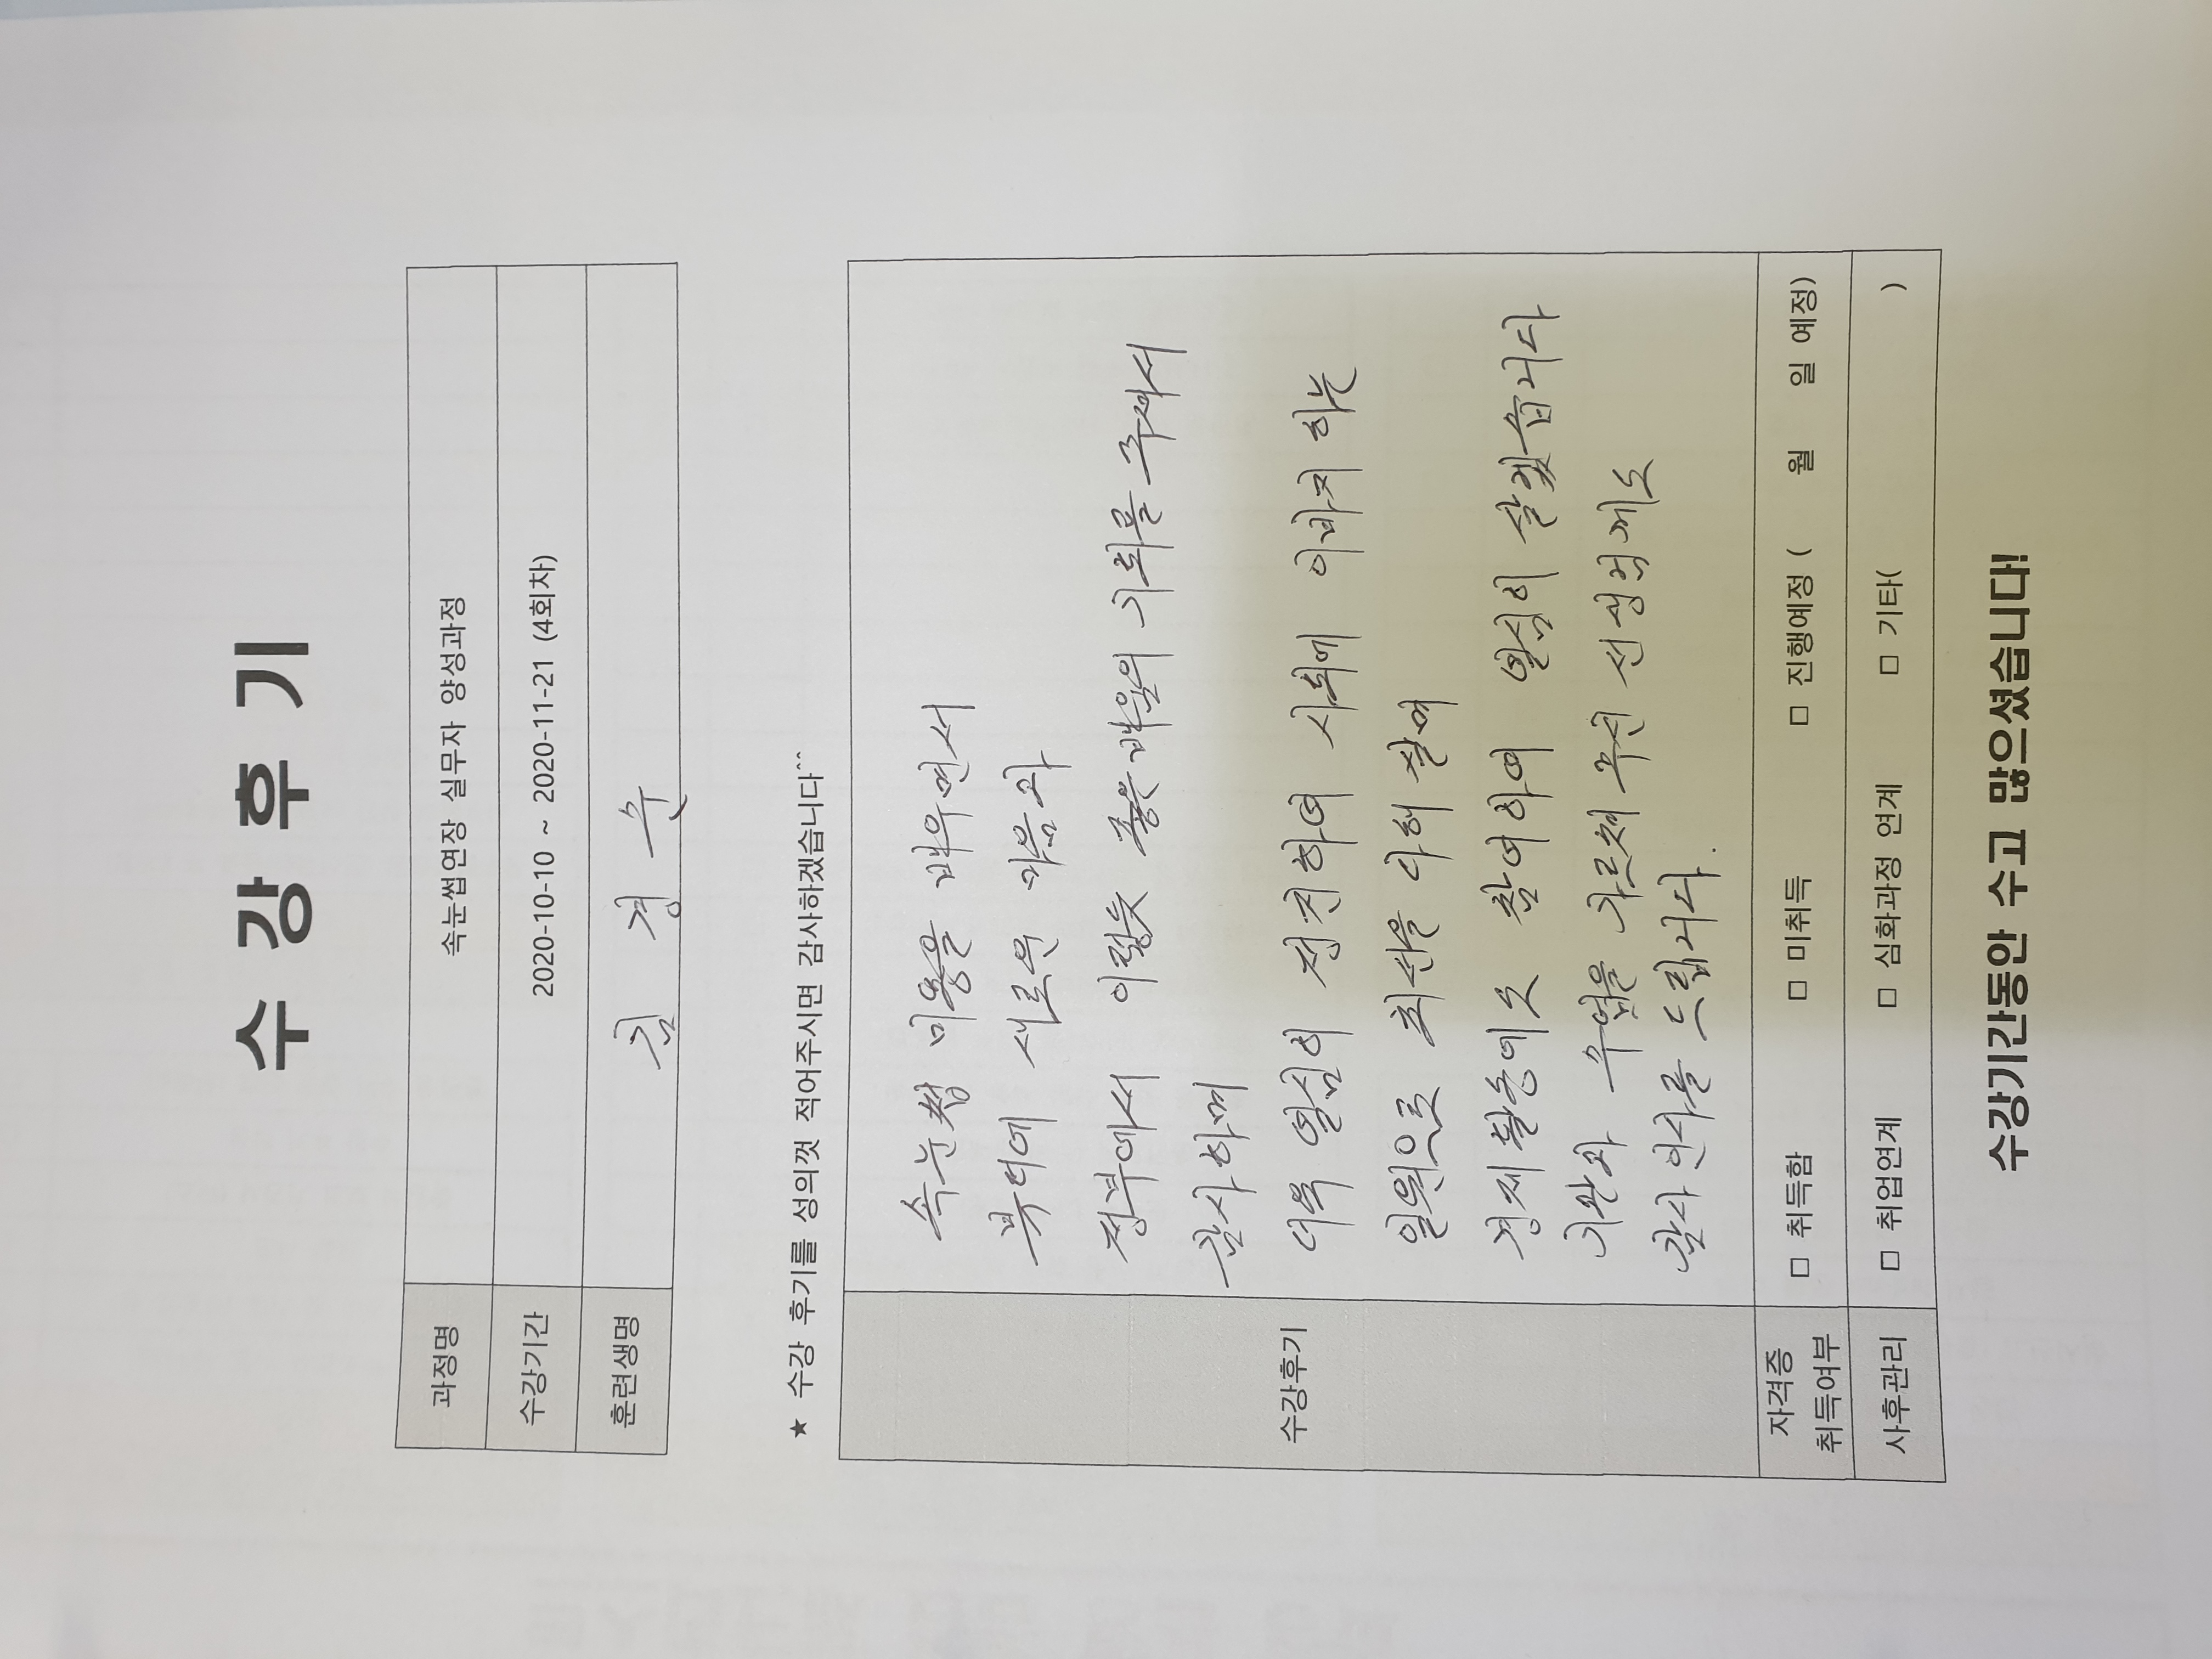 수 강 후 기
과정명 속눈썹연장 실무자 양성과정
수강기간 2020-10-10 ~ 2020-11-21 (4회차)
훈련생명 김 경 수
★ 수강 후기를 성의껏 적어주시면 감사하겠습니다^^
수강후기
속눈썹 미용을 배우면서
뷰티에 새로운 마음과
정부에서 이렇듯 좋은 배움의 기회를 주셔서
감사하며
더욱 열심히 정진하여 사회에 이바지 하는
일원으로 최선을 다해 살며
경제활동에도 참여하여 열심히 살겠습니다
기관과 수업을 가르쳐 주신 선생님께도
감사 인사를 드립니다.
자격증 취득여부 □ 취득함 □ 미취득 □ 진행예정 ( 월 일 예정)
사후관리 □ 취업연계 □ 심화과정 연계 □ 기타( )
수강기간동안 수고 많으셨습니다!